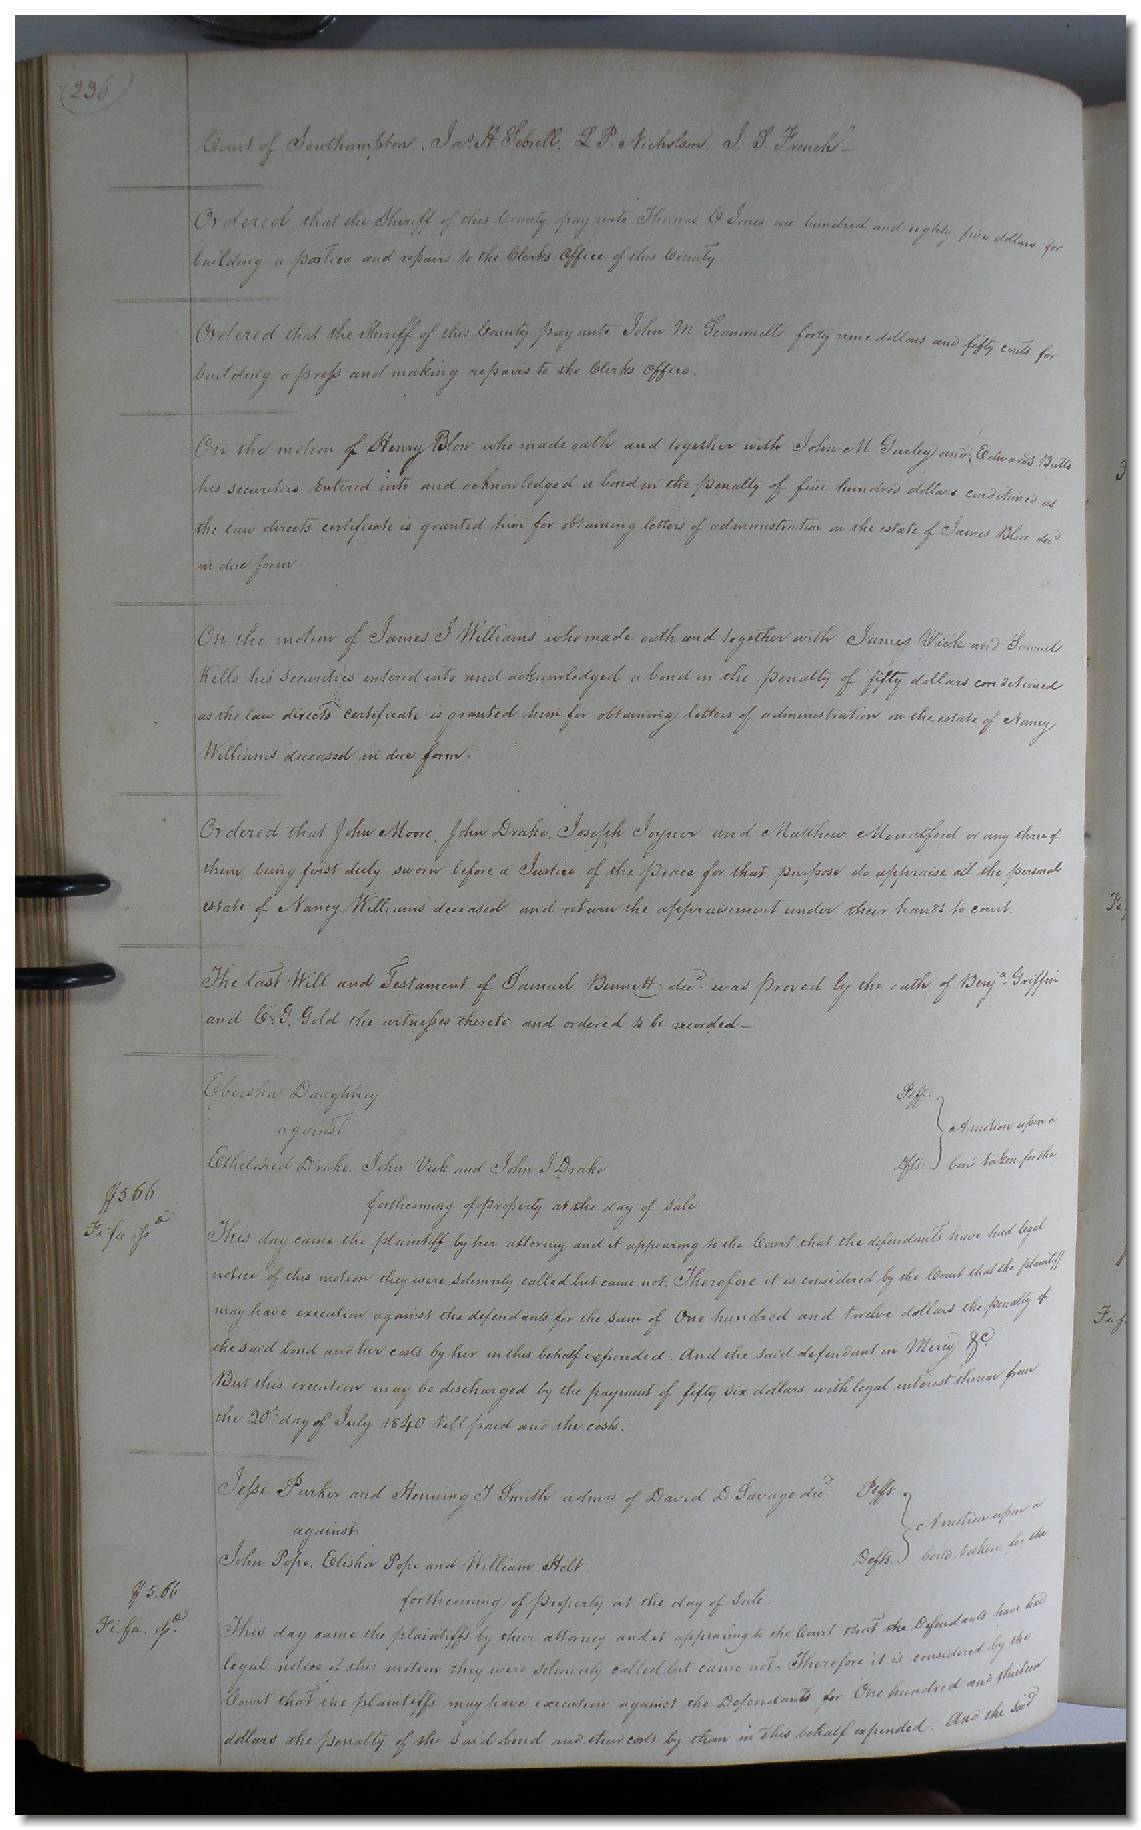 (236)
Court of Southampton. Jas. H Sebrell. L P. Nicholson. J. S. French—
Ordered that the Sheriff of this County pay unto Thomas O Jones one hundred and eighty five dollars for
building a portico and repairs to the Clerks Office of this County
Ordered that the Sheriff of this County pay unto John M forty nine dollars and fifty cents for
building a press and making repairs to the Clerks Office.
On the motion of Henry Blow who made oath and together with John M Gurley and Edwards Butts
his securities entered into and acknowledged a bond in the penalty of five hundred dollars conditioned as
the law directs certificate is granted him for obtaining letters of administration on the estate of James Blow decd
in due form.
On the motion of James J Williams who made oath and together with James Vick and Samuel
Kello his securities entered into and acknowledged a bond in the penalty of fifty dollars conditioned
as the law directs certificate is granted him for obtaining letters of administration on the estate of Nancy
Williams deceased in due form.
Ordered that John Moore, John Drake, Joseph Joyner and Matthew Mountford or any three of
them being first duly sworn before a Justice of the peace for that purpose do appraise all the personal
estate of Nancy Williams deceased and return the appraisement under their hands to court.
The last Will and Testament of Samuel Bennett decd. was proved by the oath of Benja. Griffin
and C. G. Gold the witnesses thereto and ordered to be recorded—
Daughtrey Plff.
against A motion upon a
Etheldred Drake, John Vick and John J Drake Dfts. bond taken for the
forthcoming of property at the day of sale
$5 66
Fi fa isd
This day came the plaintiff by her attorney and it appearing to the Court that the defendants have had legal
notice of this motion they were solemnly called but came not. Therefore it is considered by the Court that the plaintiff
may have execution against the defendants for the sum of One hundred and twelve dollars the penalty of
the said bond and her costs by her in this behalf expended. And the said defendant in Mercy &c.
But this execution may be discharged by the payment of fifty six dollars with legal interest thereon from
the 20t day of July 1840 till paid and the costs.
Jesse Parker and Henning T Smith admrs of David D Savage decd Plffs
against A motion upon a
John Pope, Elisha Pope and William Holt Defts. bond taken for the
forthcoming of property at the day of sale.
$5.66
Fi. fa. isd.
This day came the plaintiffs by their attorney and it appearing to the Court that the Defendants have had
legal notice of this motion they were solemnly called but came not. Therefore it is considered by the
Court that the plaintiffs may have execution against the Defendants for One hundred and thirteen
dollars the penalty of the said bond and their costs by them in this behalf expended. And the said